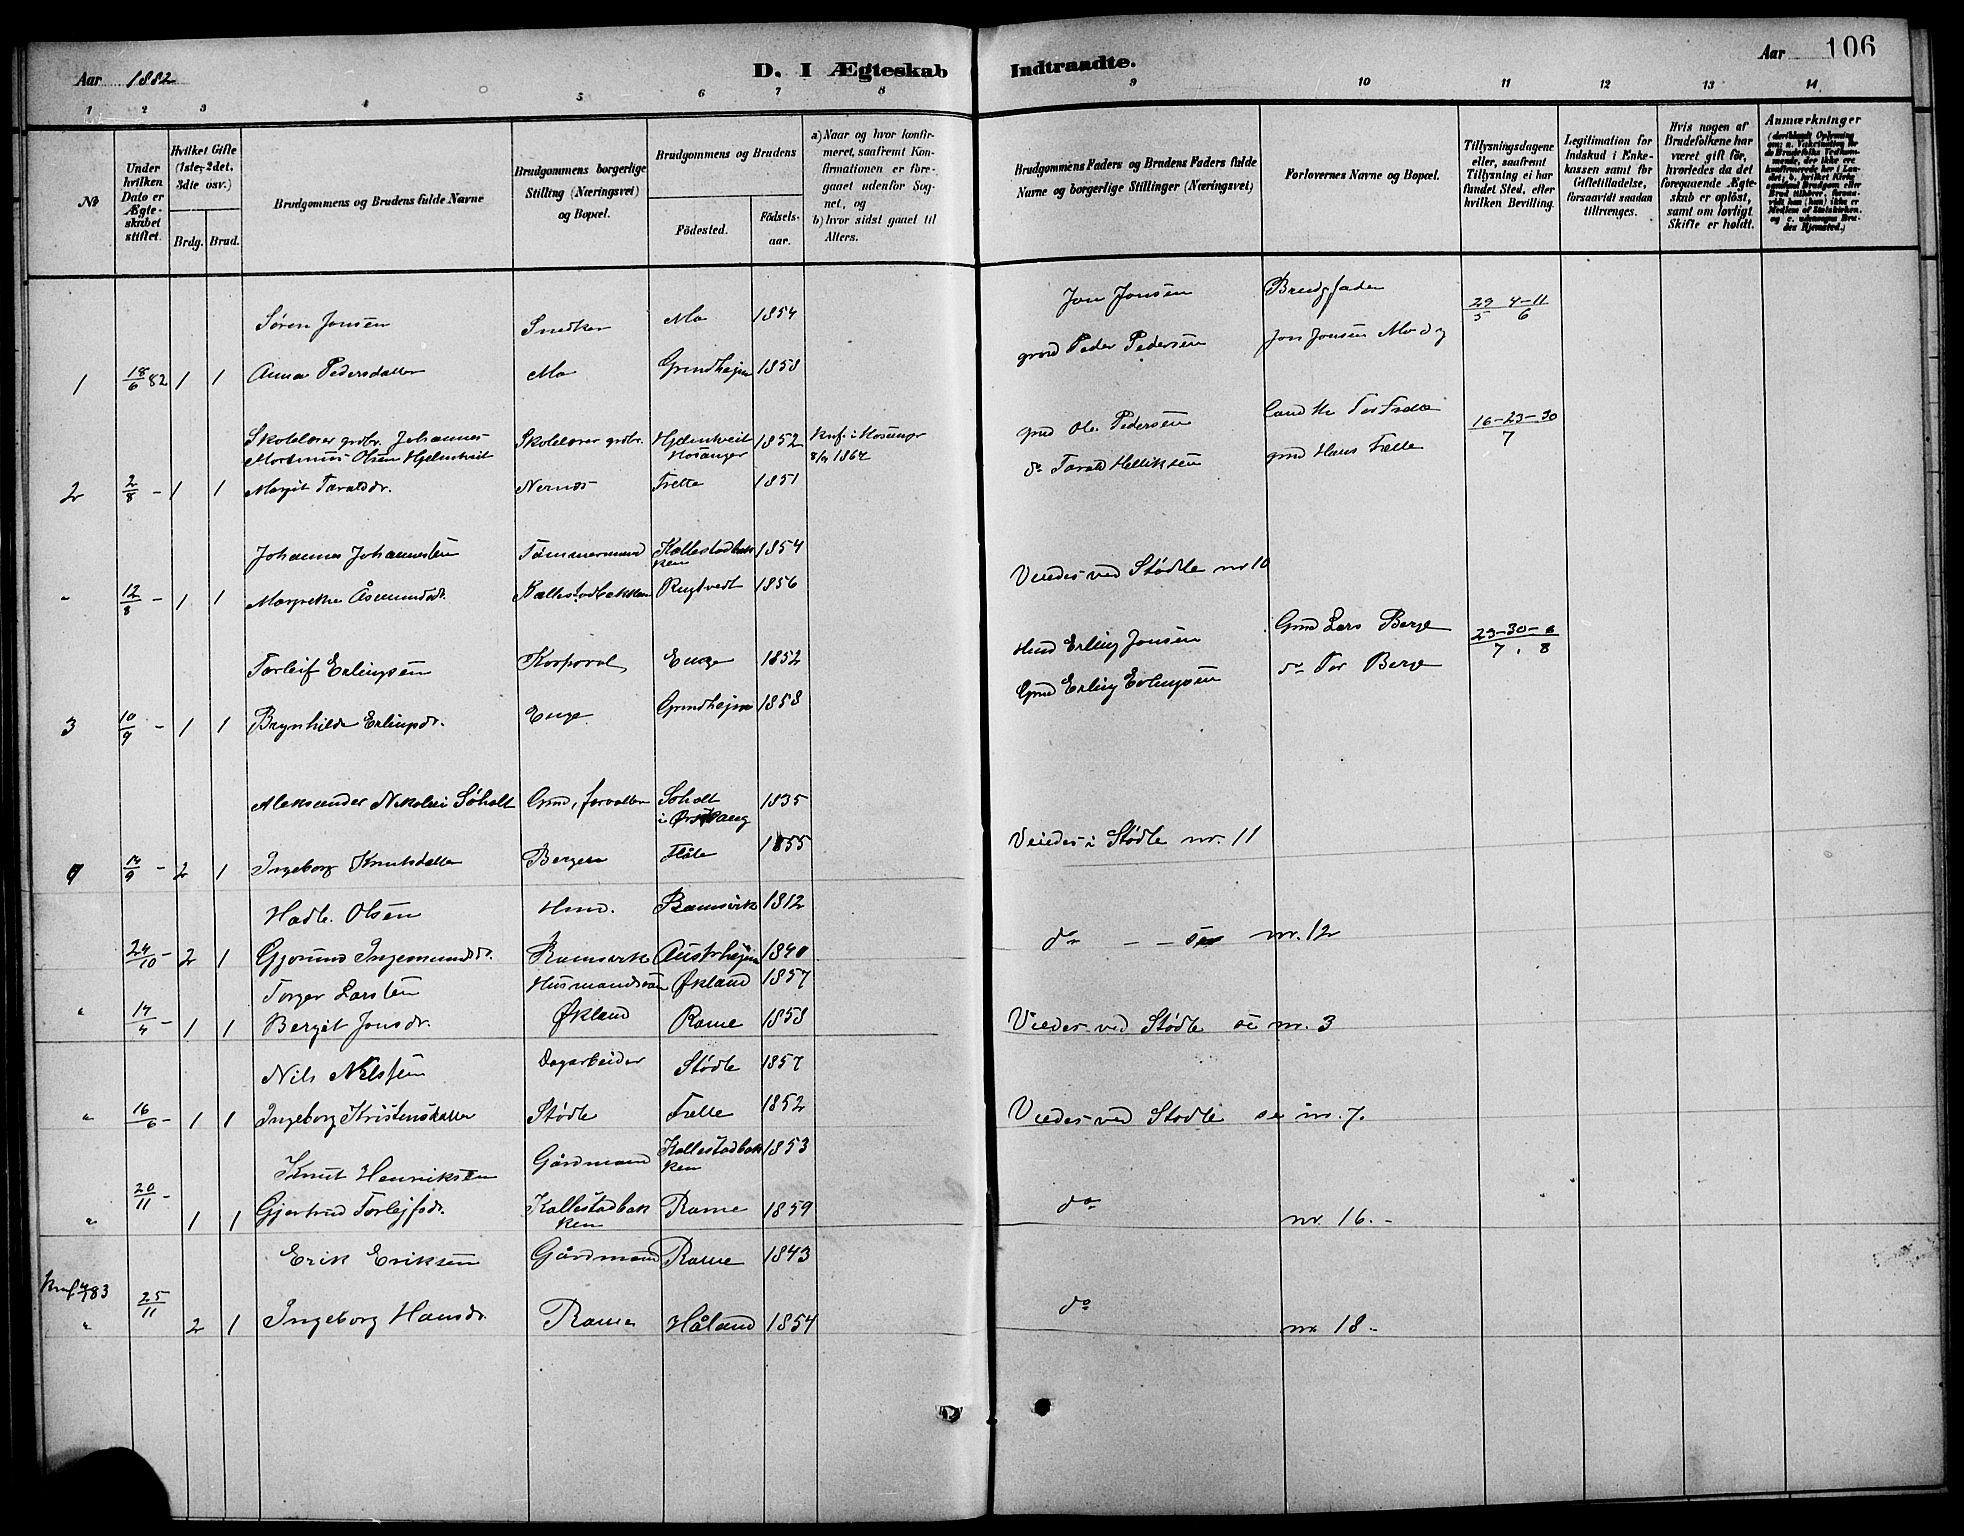 Aar 1882 D. I Ægteskab Indtraadte. Aar 106
1 2 3 4 5 6 7 8 9 10 11 12 13 14
No
Under hvilken Dato er Ægteskabet stiftet.
Hvilket Gifte (1ste, 2det, 3die osv.)
Brdg. Brud.
Brudgommens og Brudens fulde Navne
Brudgommens borgerlige Stilling (Næringsvei) og Bopæl.
Brudgommens og Brudens
Födested. Födselsaar.
a) Naar og hvor konfirmeret, saafremt Konfirmationen er foregaaet udenfor Sognet, og
b) hvor sidst gaaet til Alters.
Brudgommens Faders og Brudens Faders fulde Navne og borgerlige Stillinger (Næringsvei)
Forlovernes Navne og Bopæl.
Tillysningsdagene eller, saafremt Tillysning ei har fundet Sted, efter hvilken Bevilling.
Legitimation for Indskud i Enkekassen samt for Giftetilladelse, forsaavidt saadan tiltrænges.
Hvis nogen af Brudefolkene har været gift för, hvorledes da det foregaaende Ægteskab er oplöst, samt om lovligt Skifte er holdt.
Anmærkninger
Søren Jonsen Snedker Mo 1854 Jon Jonsen Brudgfader 29/5 4-11/6
1 18/6 82 1 1 Anna Pedersdatter Mo Grindhejm 1858 grd Peder Pedersen Jon Jonsen Mo
Skolelærer grdbr. Johannes Skolelærer grdbr. Hjelmtveit 1852 Knf. i Hosanger gmd Ole Pedersen 16-23-30/7
Mortinus Olsen Hjelmtveit Hosanger 1864 do Tarald Helliksen gmd Hans Frette
2 2/8 - 1 1 Margit Taraldsdr. Nernes Frette 1851
Johannes Johannesen Tømmermand Kallestadbakken 1854
" 12/8 - 1 1 Margrethe Åsmundsdr. Kallestadbakken Rugtvedt 1856 Viedes ved Stødle nr 10
Torleif Erlingsen Korporal Enge 1852 Hmd Erling Jonsen Gmd Lars Berge 23-30/7 . 6/8
3 10/9 - 1 1 Brynhilde Erlingsdr. Enge Grindhejm 1858 Gmd Erling Erlingsen do Tor Berge
Aleksander Nikolai Söholt Grud, forvalter Søholt i Ørskoug 1835
4 14/9 - 2 1 Ingeborg Knutsdatter Bergen Flåte 1855 Viedes i Stødle nr. 11
Hadle Olsen Hmd. Ramsvik 1812
24/10 - 2 1 Gjorund Ingemundsdr. Ramsvik Austrhejm 1840 do - - nr. 12
Torger Larsen Husmandssøn Økland 1857
" 14/4 - 1 1 Bergit Jonsdr. Økland Rame 1858 Viedes ved Stødle se nr. 3
Nils Nilssen Dagarbeider Stødle 1857
" 16/6 - 1 1 Ingeborg Kristensdatter Stødle Frette 1852 Viedes ved Stødle se nr. 7.
Knut Henriksen Gårdmand Kallestadbakken 1853
" 20/11 - 1 1 Gjertrud Torlejfsdr. Kallestadbakken Rame 1859 do nr. 16. -
Erik Eriksen Gårdmand Rame 1843
Knf 83
" 25/11 2 1 Ingeborg Hansdr. Rame Håland 1854 do nr 18 -